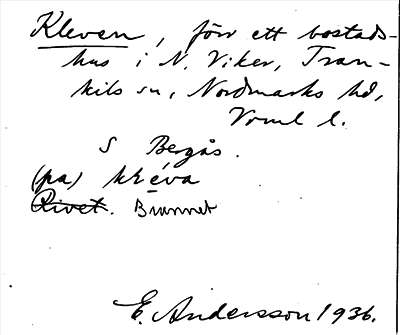 Kleven, förr ett bostads-
hus i N. Viker, Tran-
kils sn, Nordmarks hd,
Vrml l.
S Bergås.
(pa) kréva
Rivet. Brunnet
E. Andersson 1936.